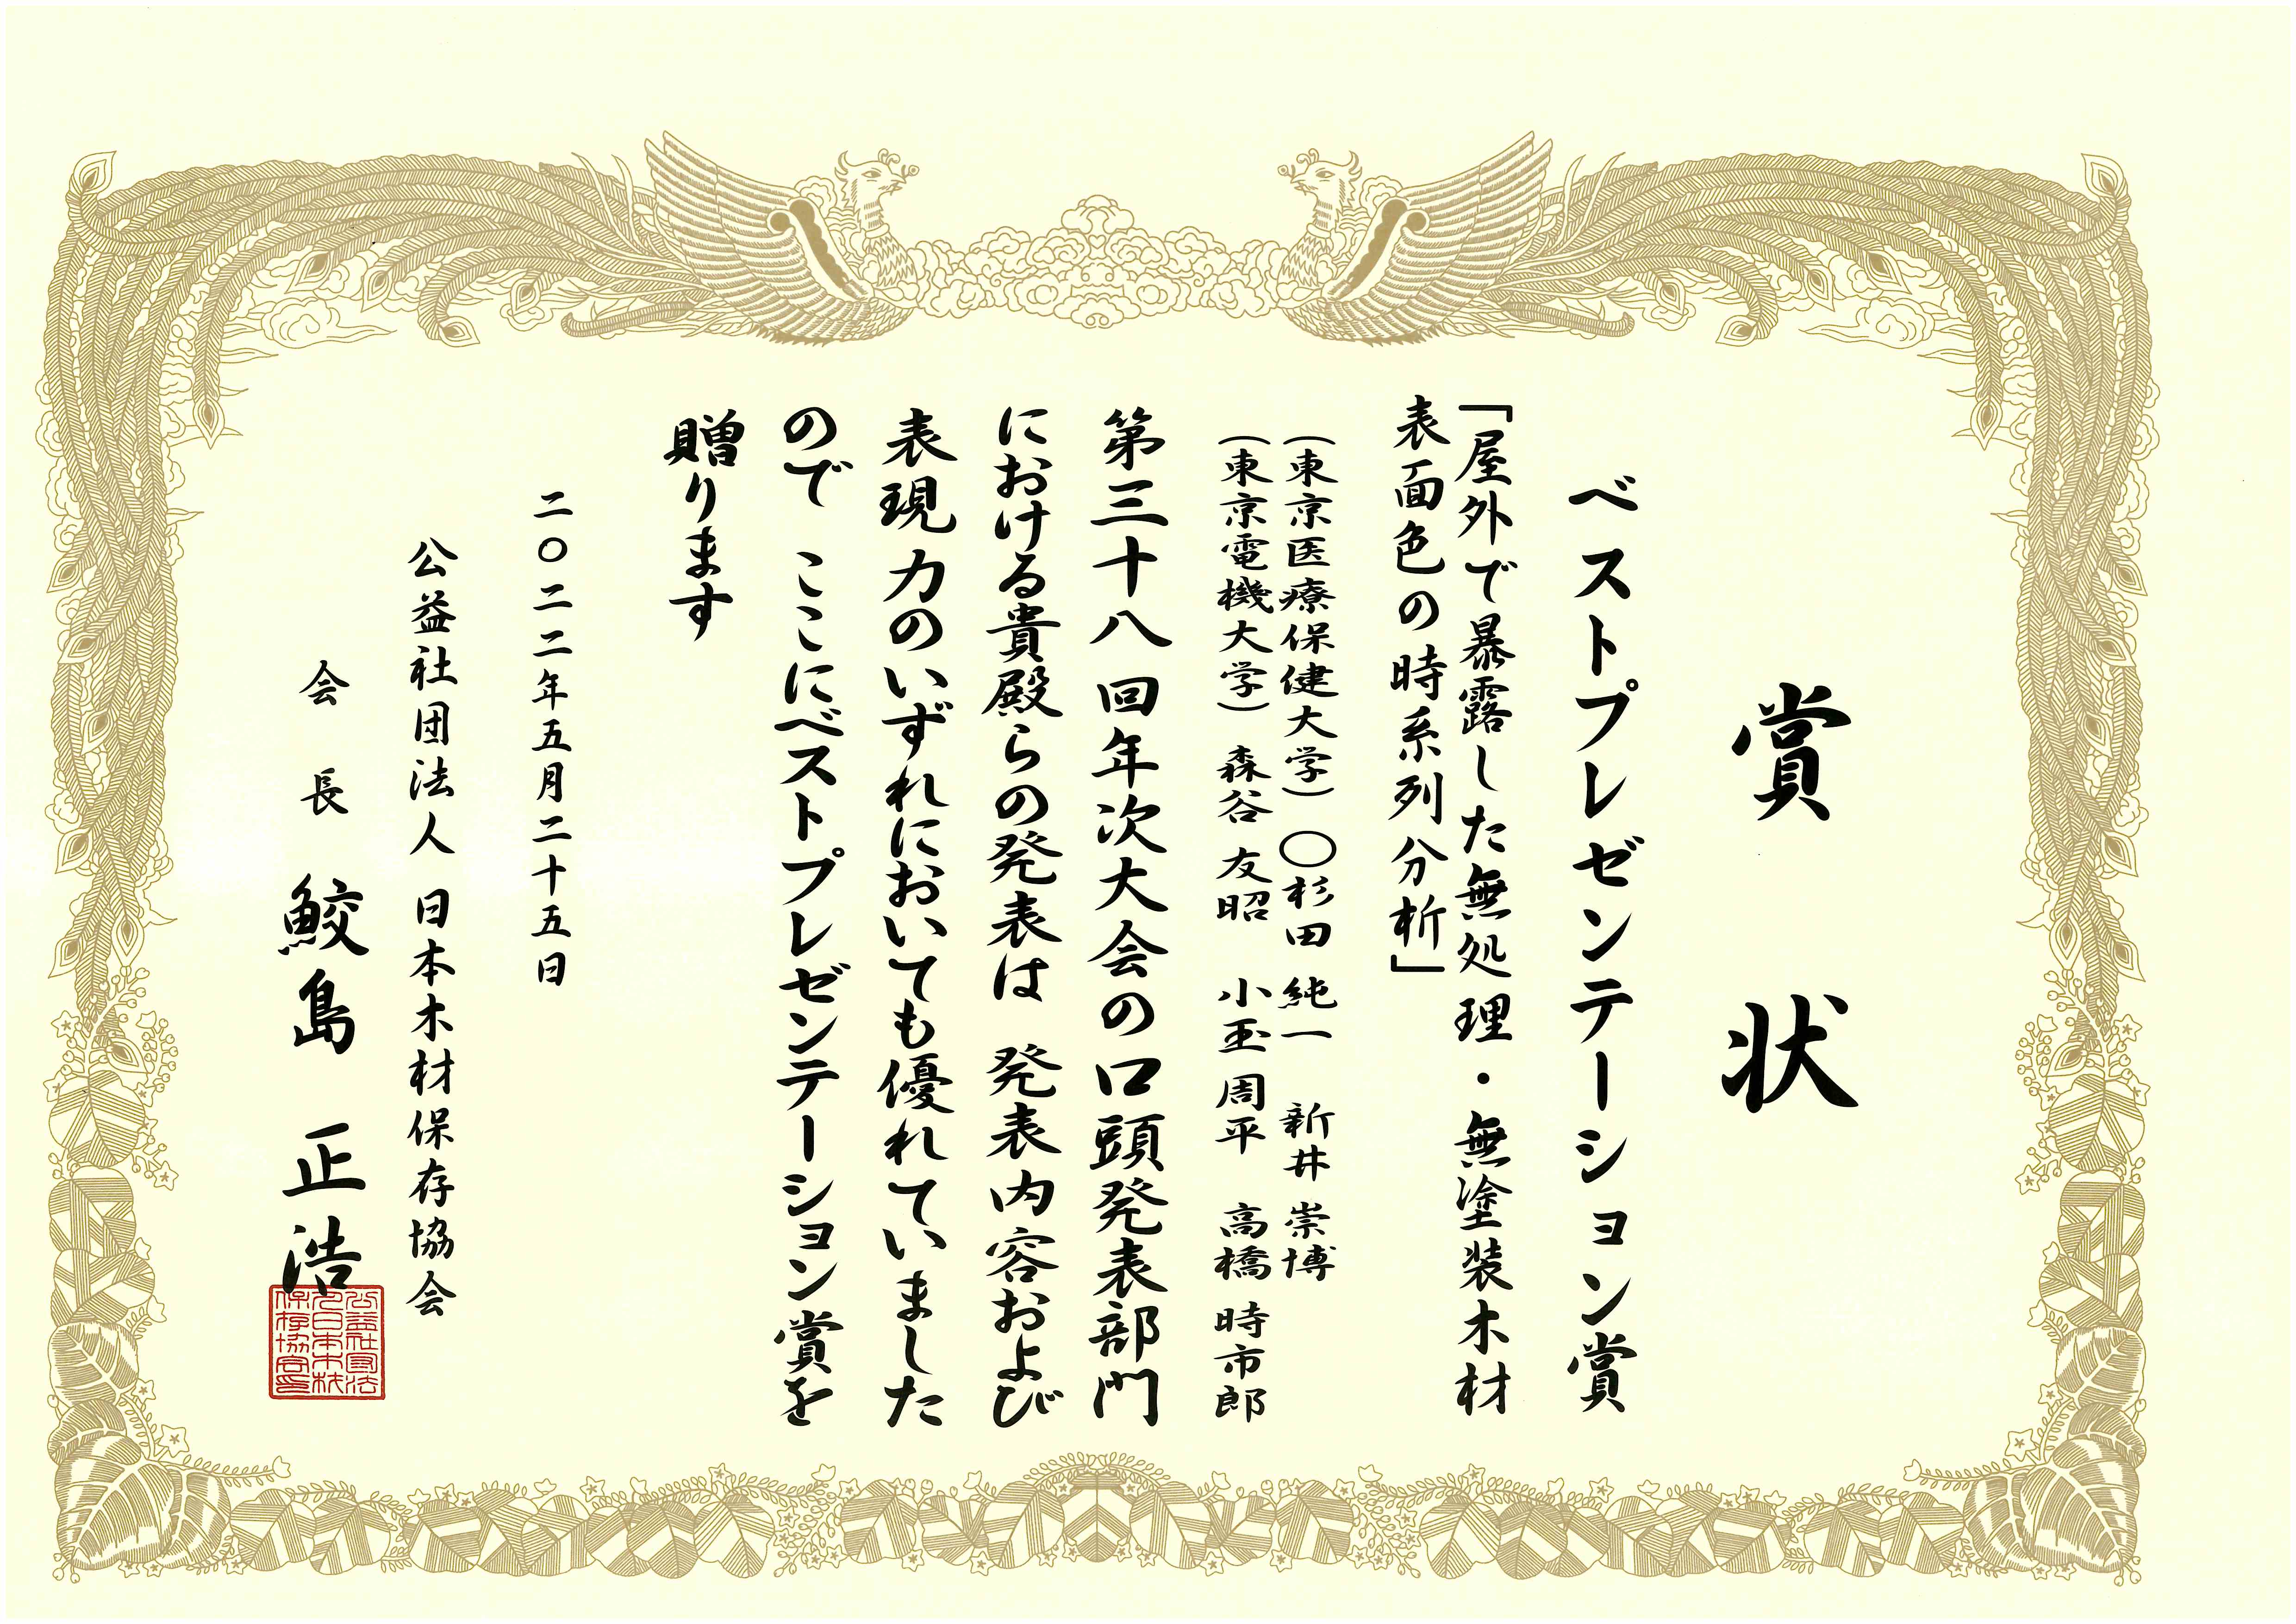 賞状
ベストプレゼンテーション賞
「屋外で暴露した無処理・無塗装木材
表面色の時系列分析」
(東京医療保健大学) ○杉田 純一 新井 崇博
(東京電機大学) 森谷 友昭 小玉 周平 高橋 時市郎
第三十八回年次大会の口頭発表部門
における貴殿らの発表は 発表内容および
表現力のいずれにおいても優れていました
ので ここにベストプレゼンテーション賞を
贈ります
二〇二二年五月二十五日
公益社団法人 日本木材保存協会
会長 鮫島 正浩
公益社団法
人日本木材
保存協会印